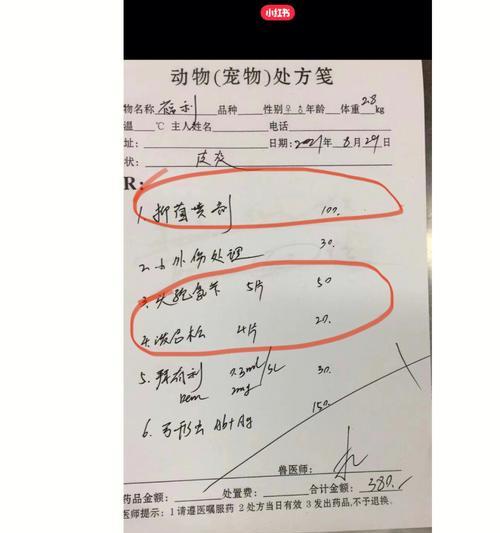 小红书
动物(宠物)处方笺
物名称 福利 品种 性别♀♂年龄 体重2.8kg
温 ℃ 主人姓名 电话
址: 日期:2021年8月29日
状: 皮炎
R:
1. 抑菌喷剂 100.
2. 外伤处理 30.
3. 头孢氨苄 5片 50
4. 泼尼松 4片 20.
5. 拜有利 0.3ml/SC 30.
Dem 2mg
6. 弓形虫 Ab+Ag 150.
兽医师:
药品金额: 处置费: 合计金额: 380.
医师提示:1 请遵医嘱服药 2 处方当日有效 3 发出药品,不予退换.